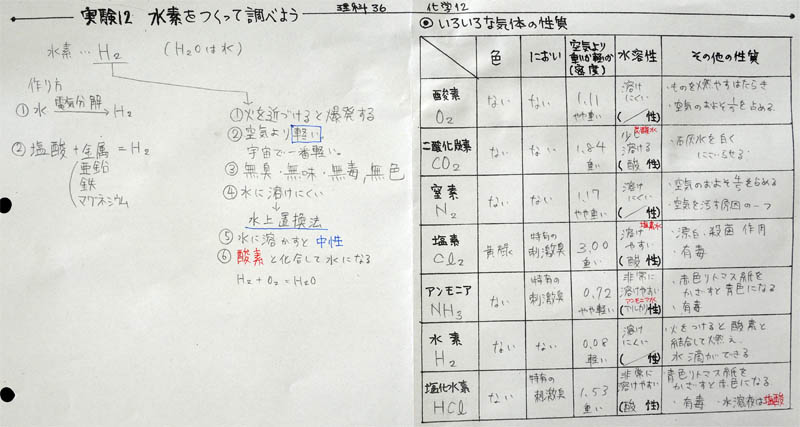 実験12 水素をつくって調べよう
理科36
化学12
水素… H₂ (H₂Oは水)
作り方
①水 電気分解 → H₂
②塩酸+金属 = H₂
亜鉛
鉄
マグネシウム
①火を近づけると爆発する
②空気より軽い。
宇宙で一番軽い。
③無臭、無味、無毒、無色
④水に溶けにくい
水上置換法
⑤水に溶かすと中性
⑥酸素と化合して水になる
H₂+O₂=H₂O
◎いろいろな気体の性質
色 におい 空気より重いか軽いか(密度) 水溶性 その他の性質
酸素 O₂ ない ない 1.11 やや重い 溶けにくい (／性) ・ものを燃やすはたらき
・空気のおよそ1/5を占める
二酸化炭素 CO₂ ない ない 1.84 重い 少し溶ける 炭酸水 (酸性) ・石灰水を白く
にごらせる
窒素 N₂ ない ない 1.17 やや重い 溶けにくい (／性) ・空気のおよそ4/5を占める
・空気を汚す原因の一つ
塩素 Cl₂ 黄緑 特有の刺激臭 3.00 重い 溶けやすい 塩素水 (酸性) ・漂白・殺菌作用
・有毒
アンモニア NH₃ ない 特有の刺激臭 0.72 やや軽い 非常に溶けやすい アンモニア水 (アルカリ性) ・赤色リトマス紙を
かざすと青色になる
・有毒
水素 H₂ ない ない 0.08 軽い 溶けにくい (／性) ・火をつけると酸素と
結合して燃え、
水滴ができる
塩化水素 HCl ない 特有の刺激臭 1.53 重い 非常に溶けやすい (酸性) ・青色リトマス紙を
かざすと赤色になる
・有毒 ・水溶液は塩酸